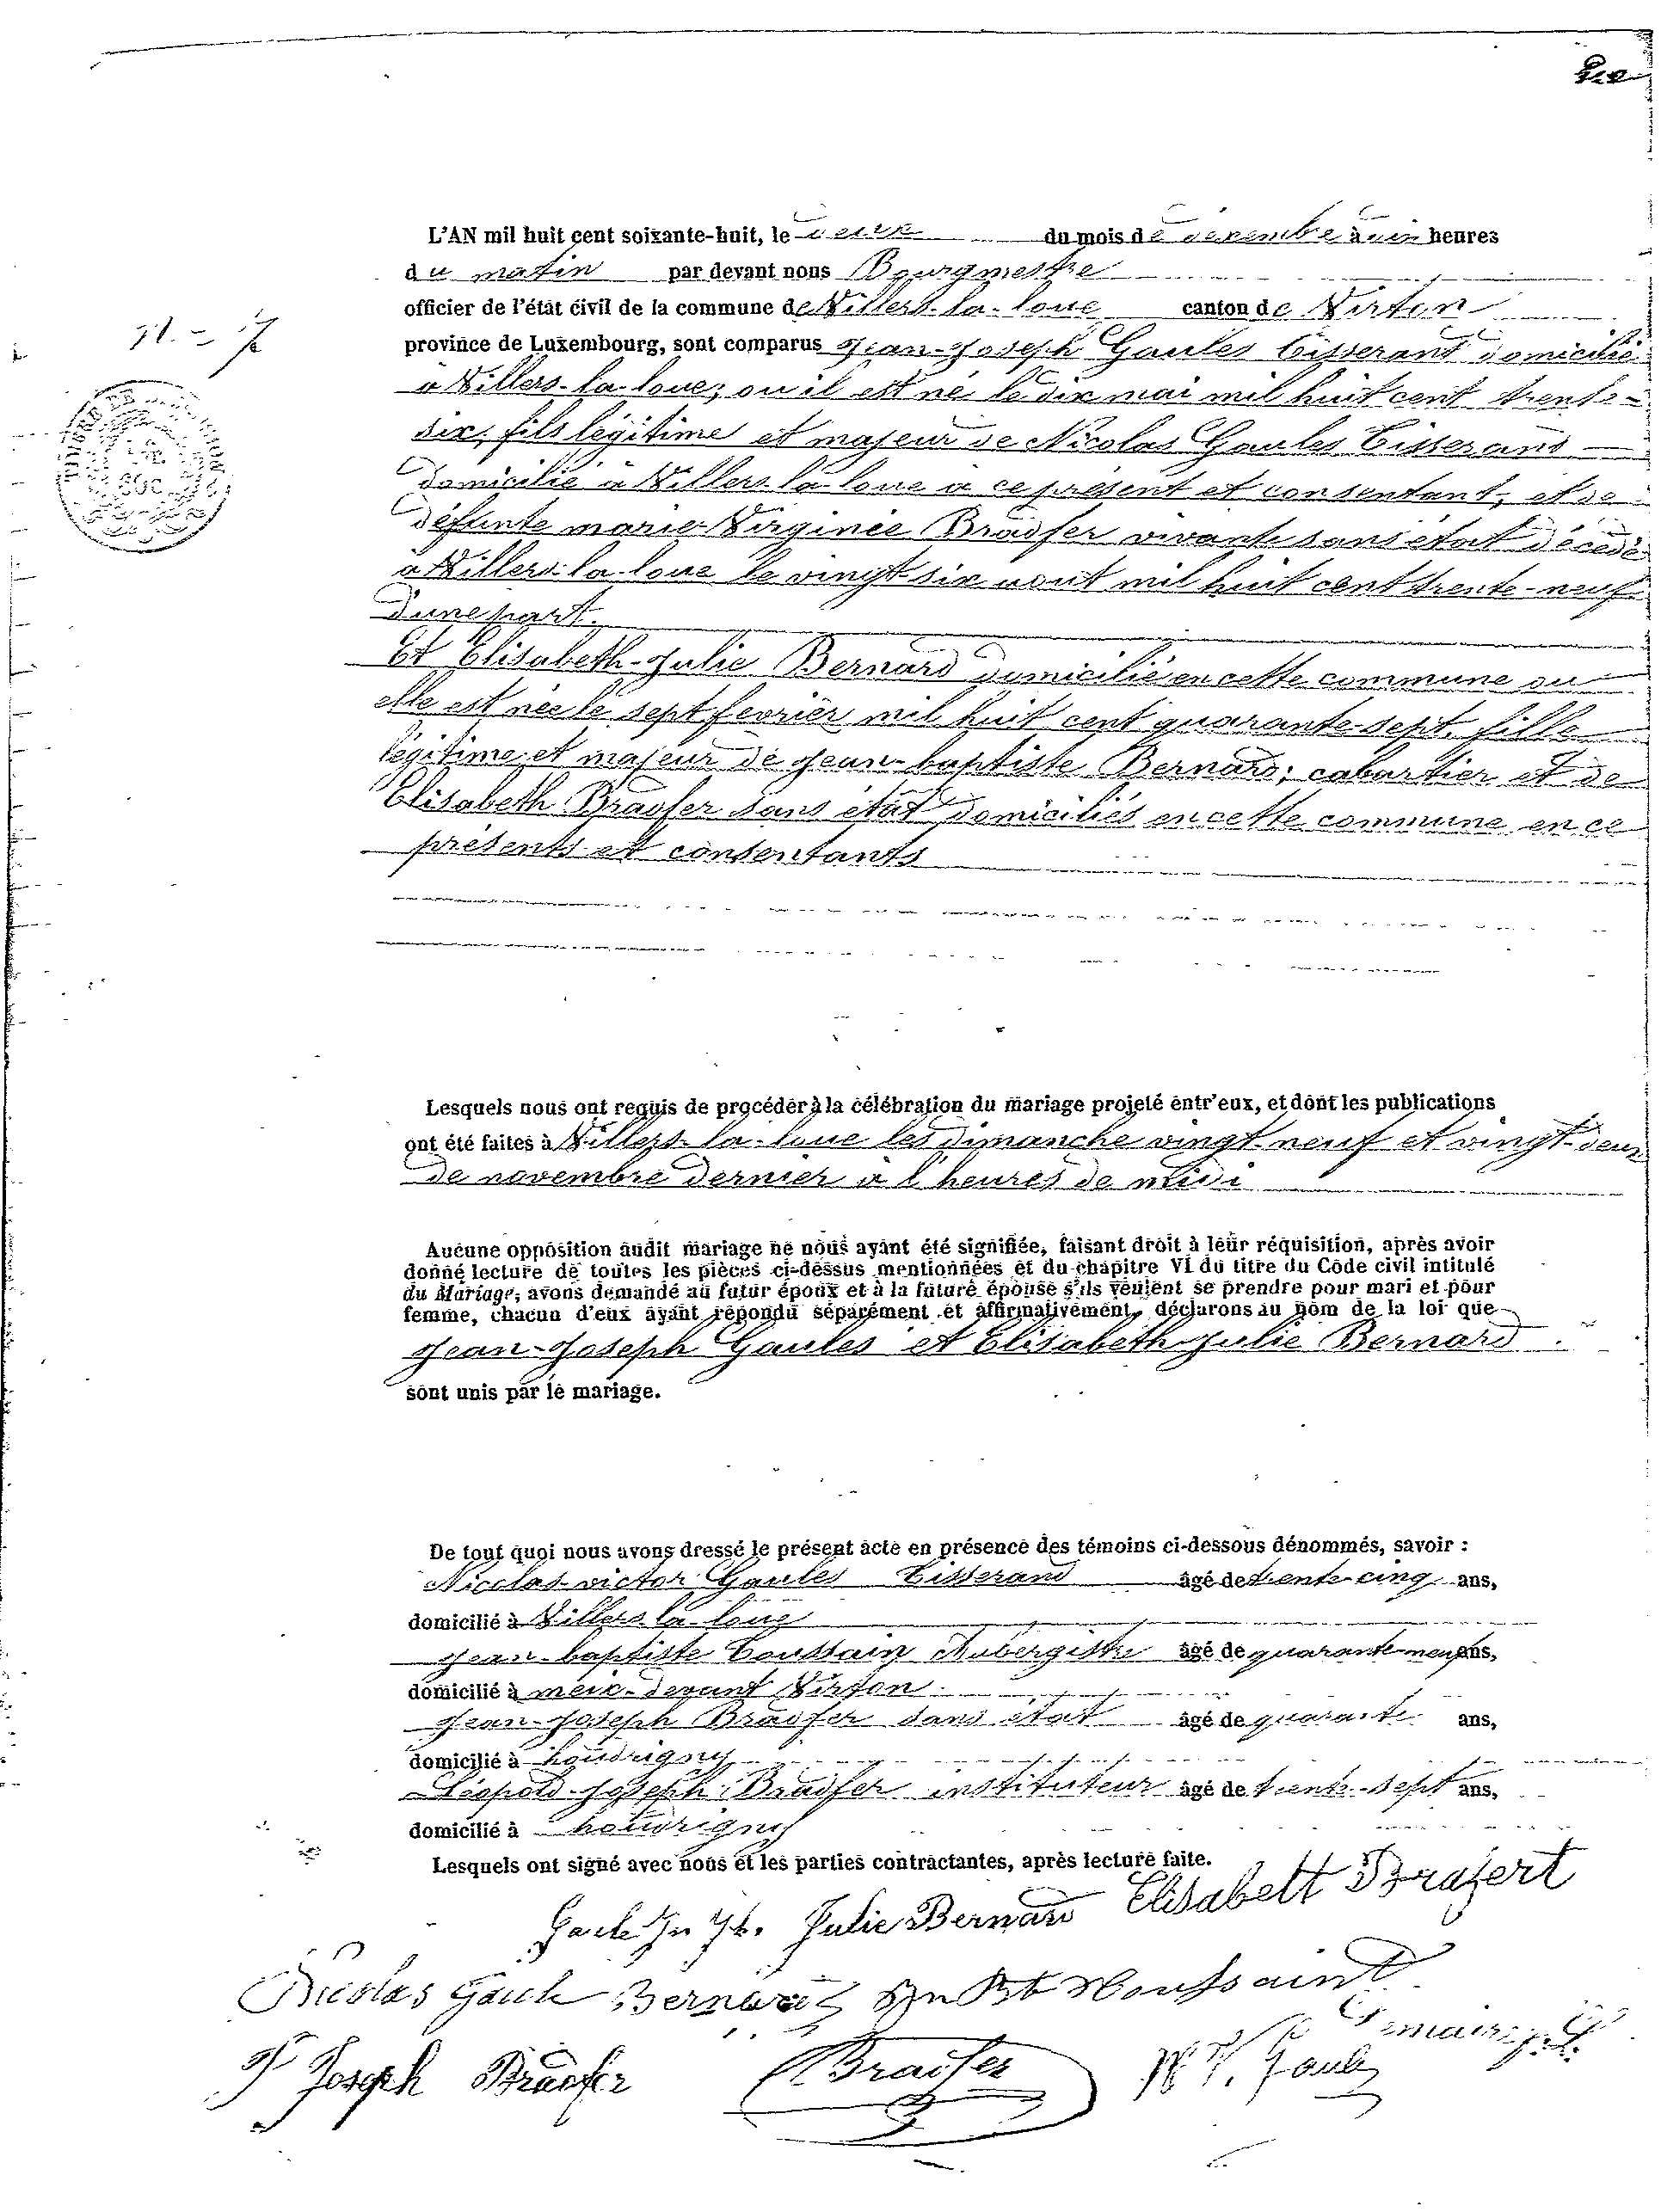 L'AN mil huit cent soixante-huit, le deux du mois de decembre à heures
du matin par devant nous Bourgmestre
officier de l'état civil de la commune de Villers-la-loue canton de Virton
province de Luxembourg, sont comparus Jean-Joseph Gaules tisserant domicilié
à Villers-la-loue, ou il est né le dix mai mil huit cent trente-
six, fils légitime et majeur de Nicolas Gaules tisserand
domicilié à Villers la loue a ce présent et consentant, et de
défunte marie Virginée Bradfer vivante sans état décédé
à Villers-la-loue le vingt six aout mil huit cent trente-neuf
d'une part.
Et Elisabeth-Julie Bernard domicilié en cette commune ou
elle est née le sept fevrièr mil huit cent quarante-sept, fille
légitime et majeur de jean-baptiste Bernard, cabartier et de
Elisabeth Bradfer sans état domiciliés en cette commune en ce
présents et consentants
Lesquels nous ont requis de procéder à la célébration du mariage projeté entr'eux, et dont les publications
ont été faites à Villers-la-loue les dimanche vingt-neuf et vingt-deux
de novembre dernier a l'heures de midi
Aucune opposition audit mariage ne nous ayant été signifiée, faisant droit à leur réquisition, après avoir
donné lecture de toutes les pièces ci-dessus mentionnées et du chapitre VI du titre du Code civil intitulé
du Mariage, avons demandé au futur époux et à la future épouse s'ils veulent se prendre pour mari et pour
femme, chacun d'eux ayant répondu séparément et affirmativement, déclarons au nom de la loi que
Jean-Joseph Gaules et Elisabeth Julie Bernard
sont unis par le mariage.
De tout quoi nous avons dressé le présent acte en présence des témoins ci-dessous dénommés, savoir :
Nicolas-victor Gaules tisserand âgé de trente-cinq ans,
domicilié à Villers la-loue
jean-baptiste toussain Aubergiste âgé de quarante-neuf ans,
domicilié à meix-devant Virton
Jean-Joseph Bradfer sans état âgé de quarante ans,
domicilié à houdrigny
Léopold-Joseph Bradfer instituteur âgé de trente-sept ans,
domicilié à houdrigny
Lesquels ont signé avec nous et les parties contractantes, après lecture faite.
Julie Bernard Elisabett Brafert
Nicolas Gaule Bernard
Joseph Bradfer Bradfer N V. Gaule